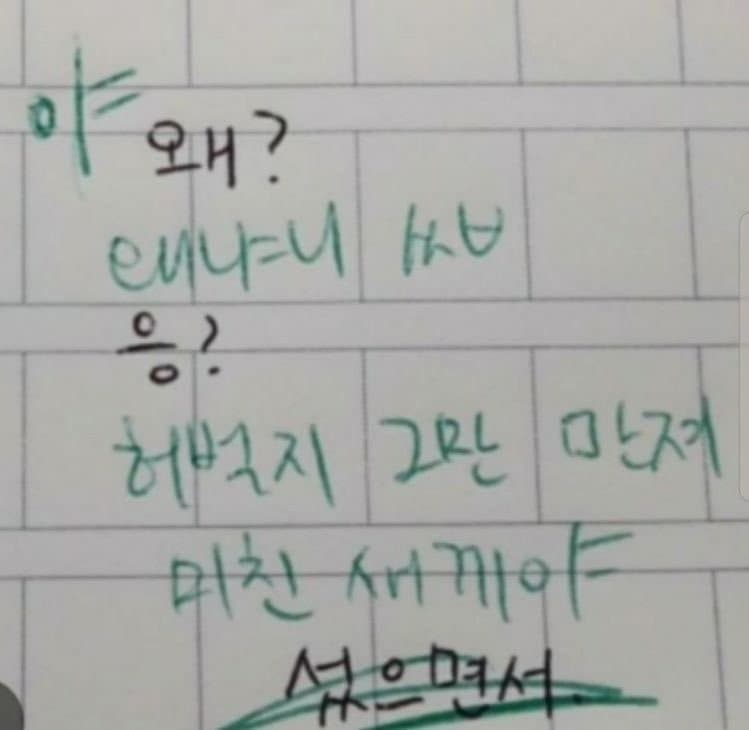 야
왜?
태나니 ㅆㅂ
응?
허벅지 그만 만져
미친 새끼야
섰으면서.